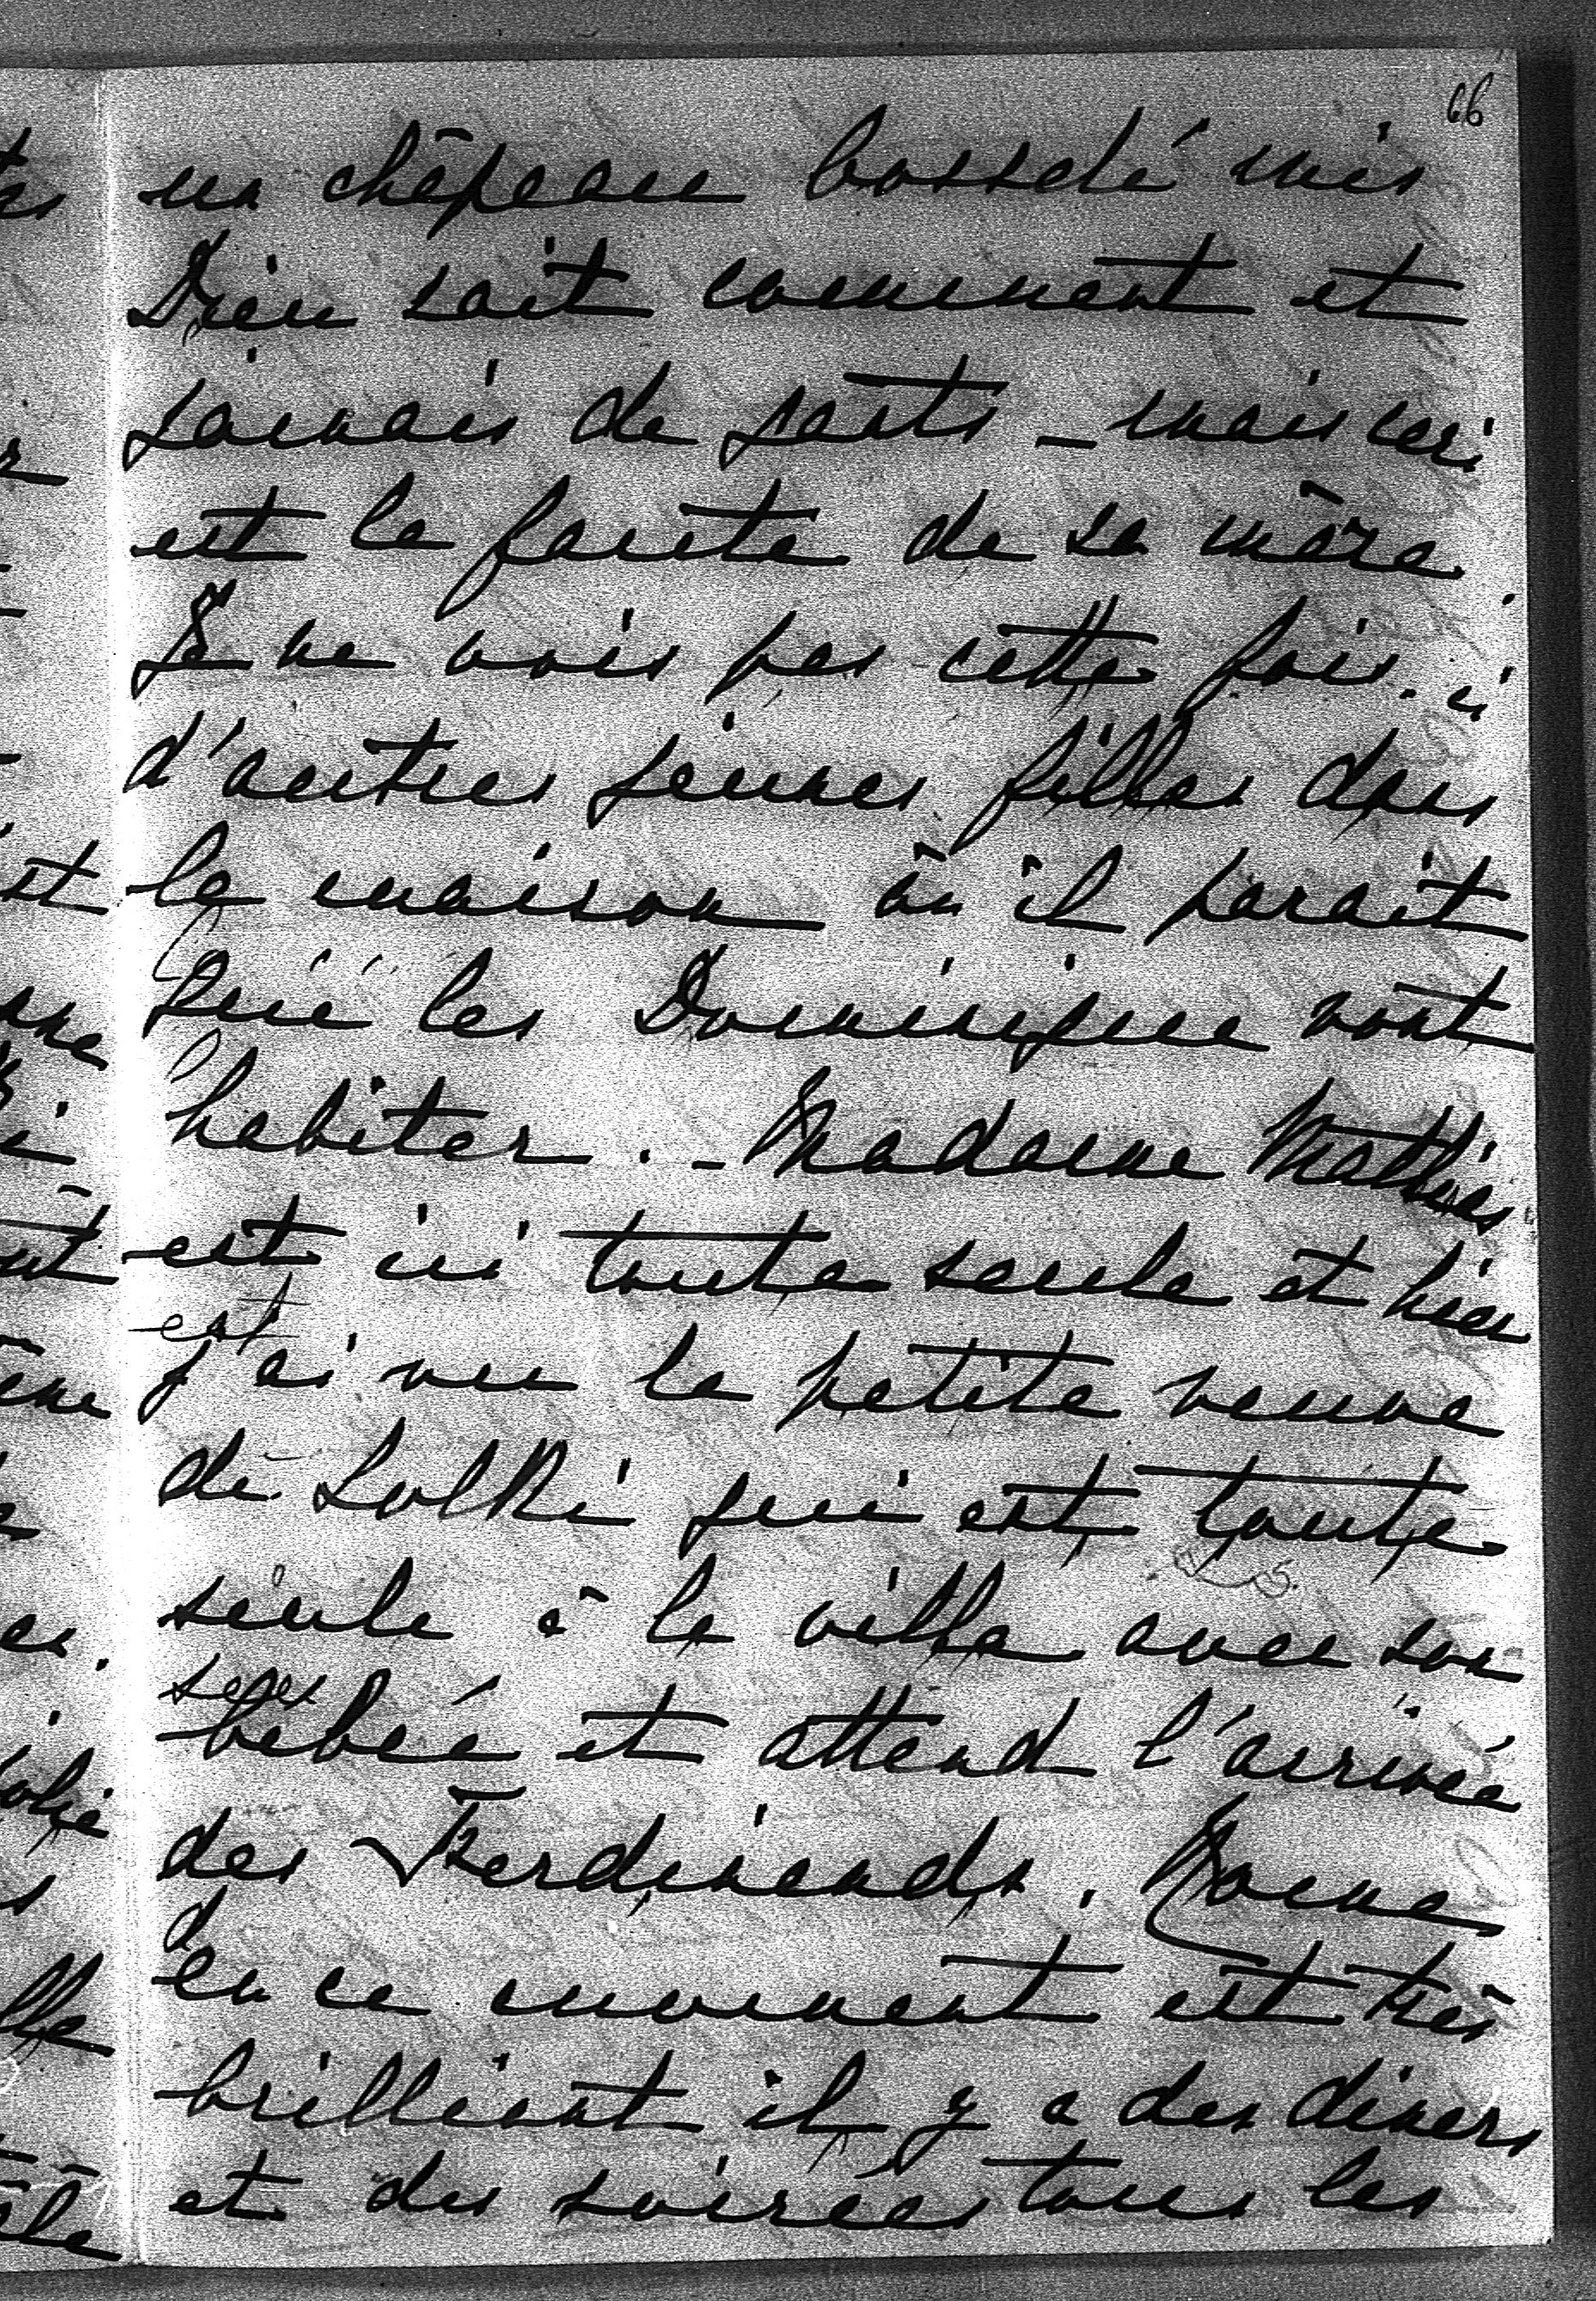 66
un châpeau bosselé mis
Dieu sait comment et
jamais de gants – mais ceci
est la faute de sa mère
Je ne vois pas cette fois. ci
d'autres jeunes filles dans
la maison où il parait
que les Dominique vont
habiter. – Madame
est ici toute seule et hier
j'ai vu la petite veuve
de Solki qui est toute
seule à la villa avec son
bébé et attend l'arrivée
des Ferdinands. Rome
en ce moment est très
brilliant il y a des diners
et des soirées tous les